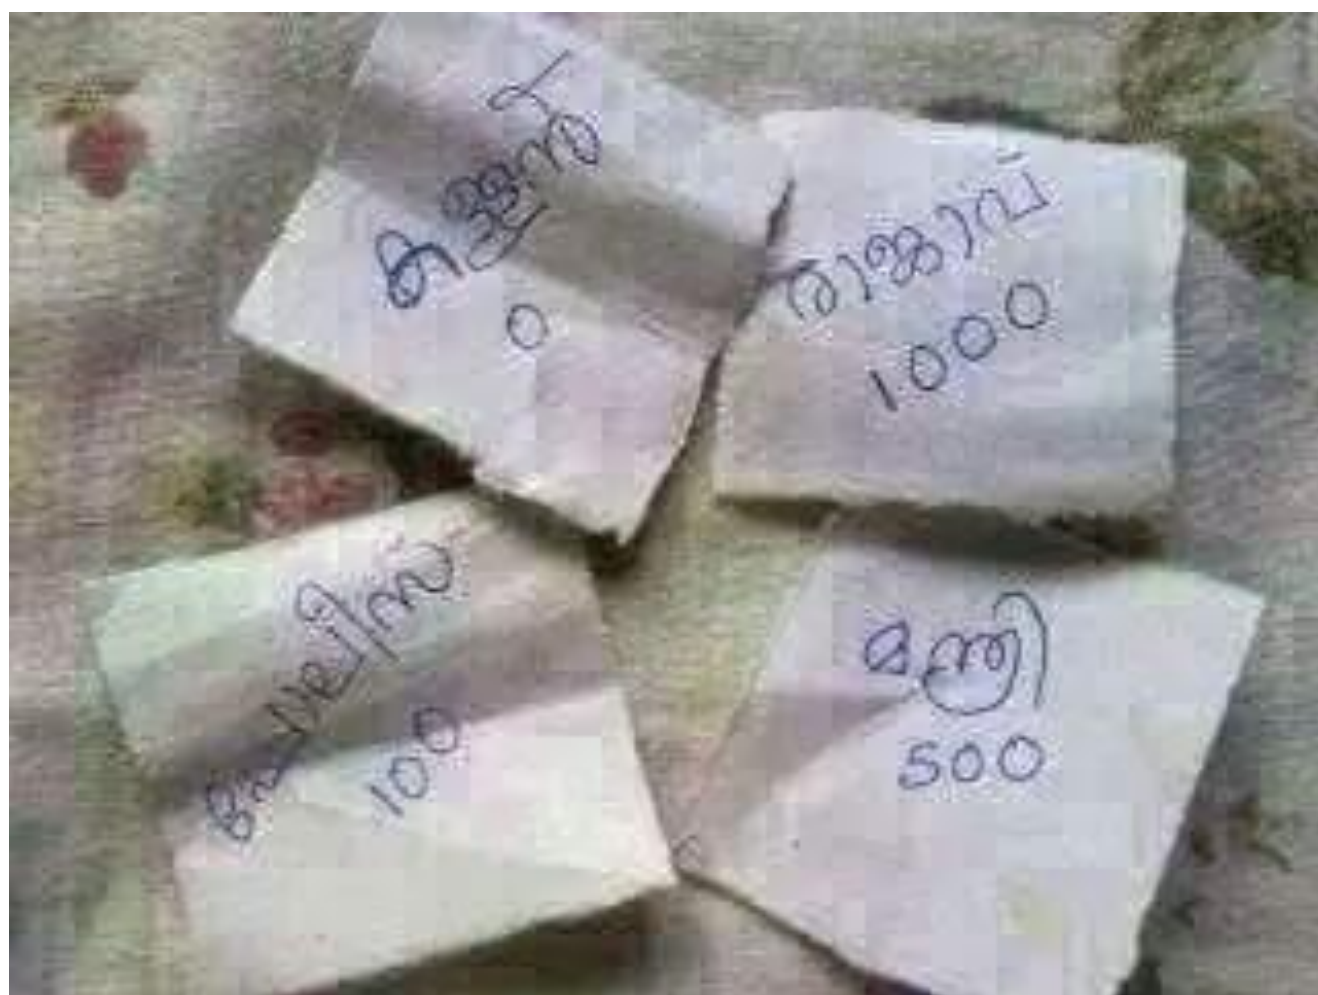 കള്ളന്
0
രാജാവ്
1000
പോലീസ്
100
മന്ത്രി
500